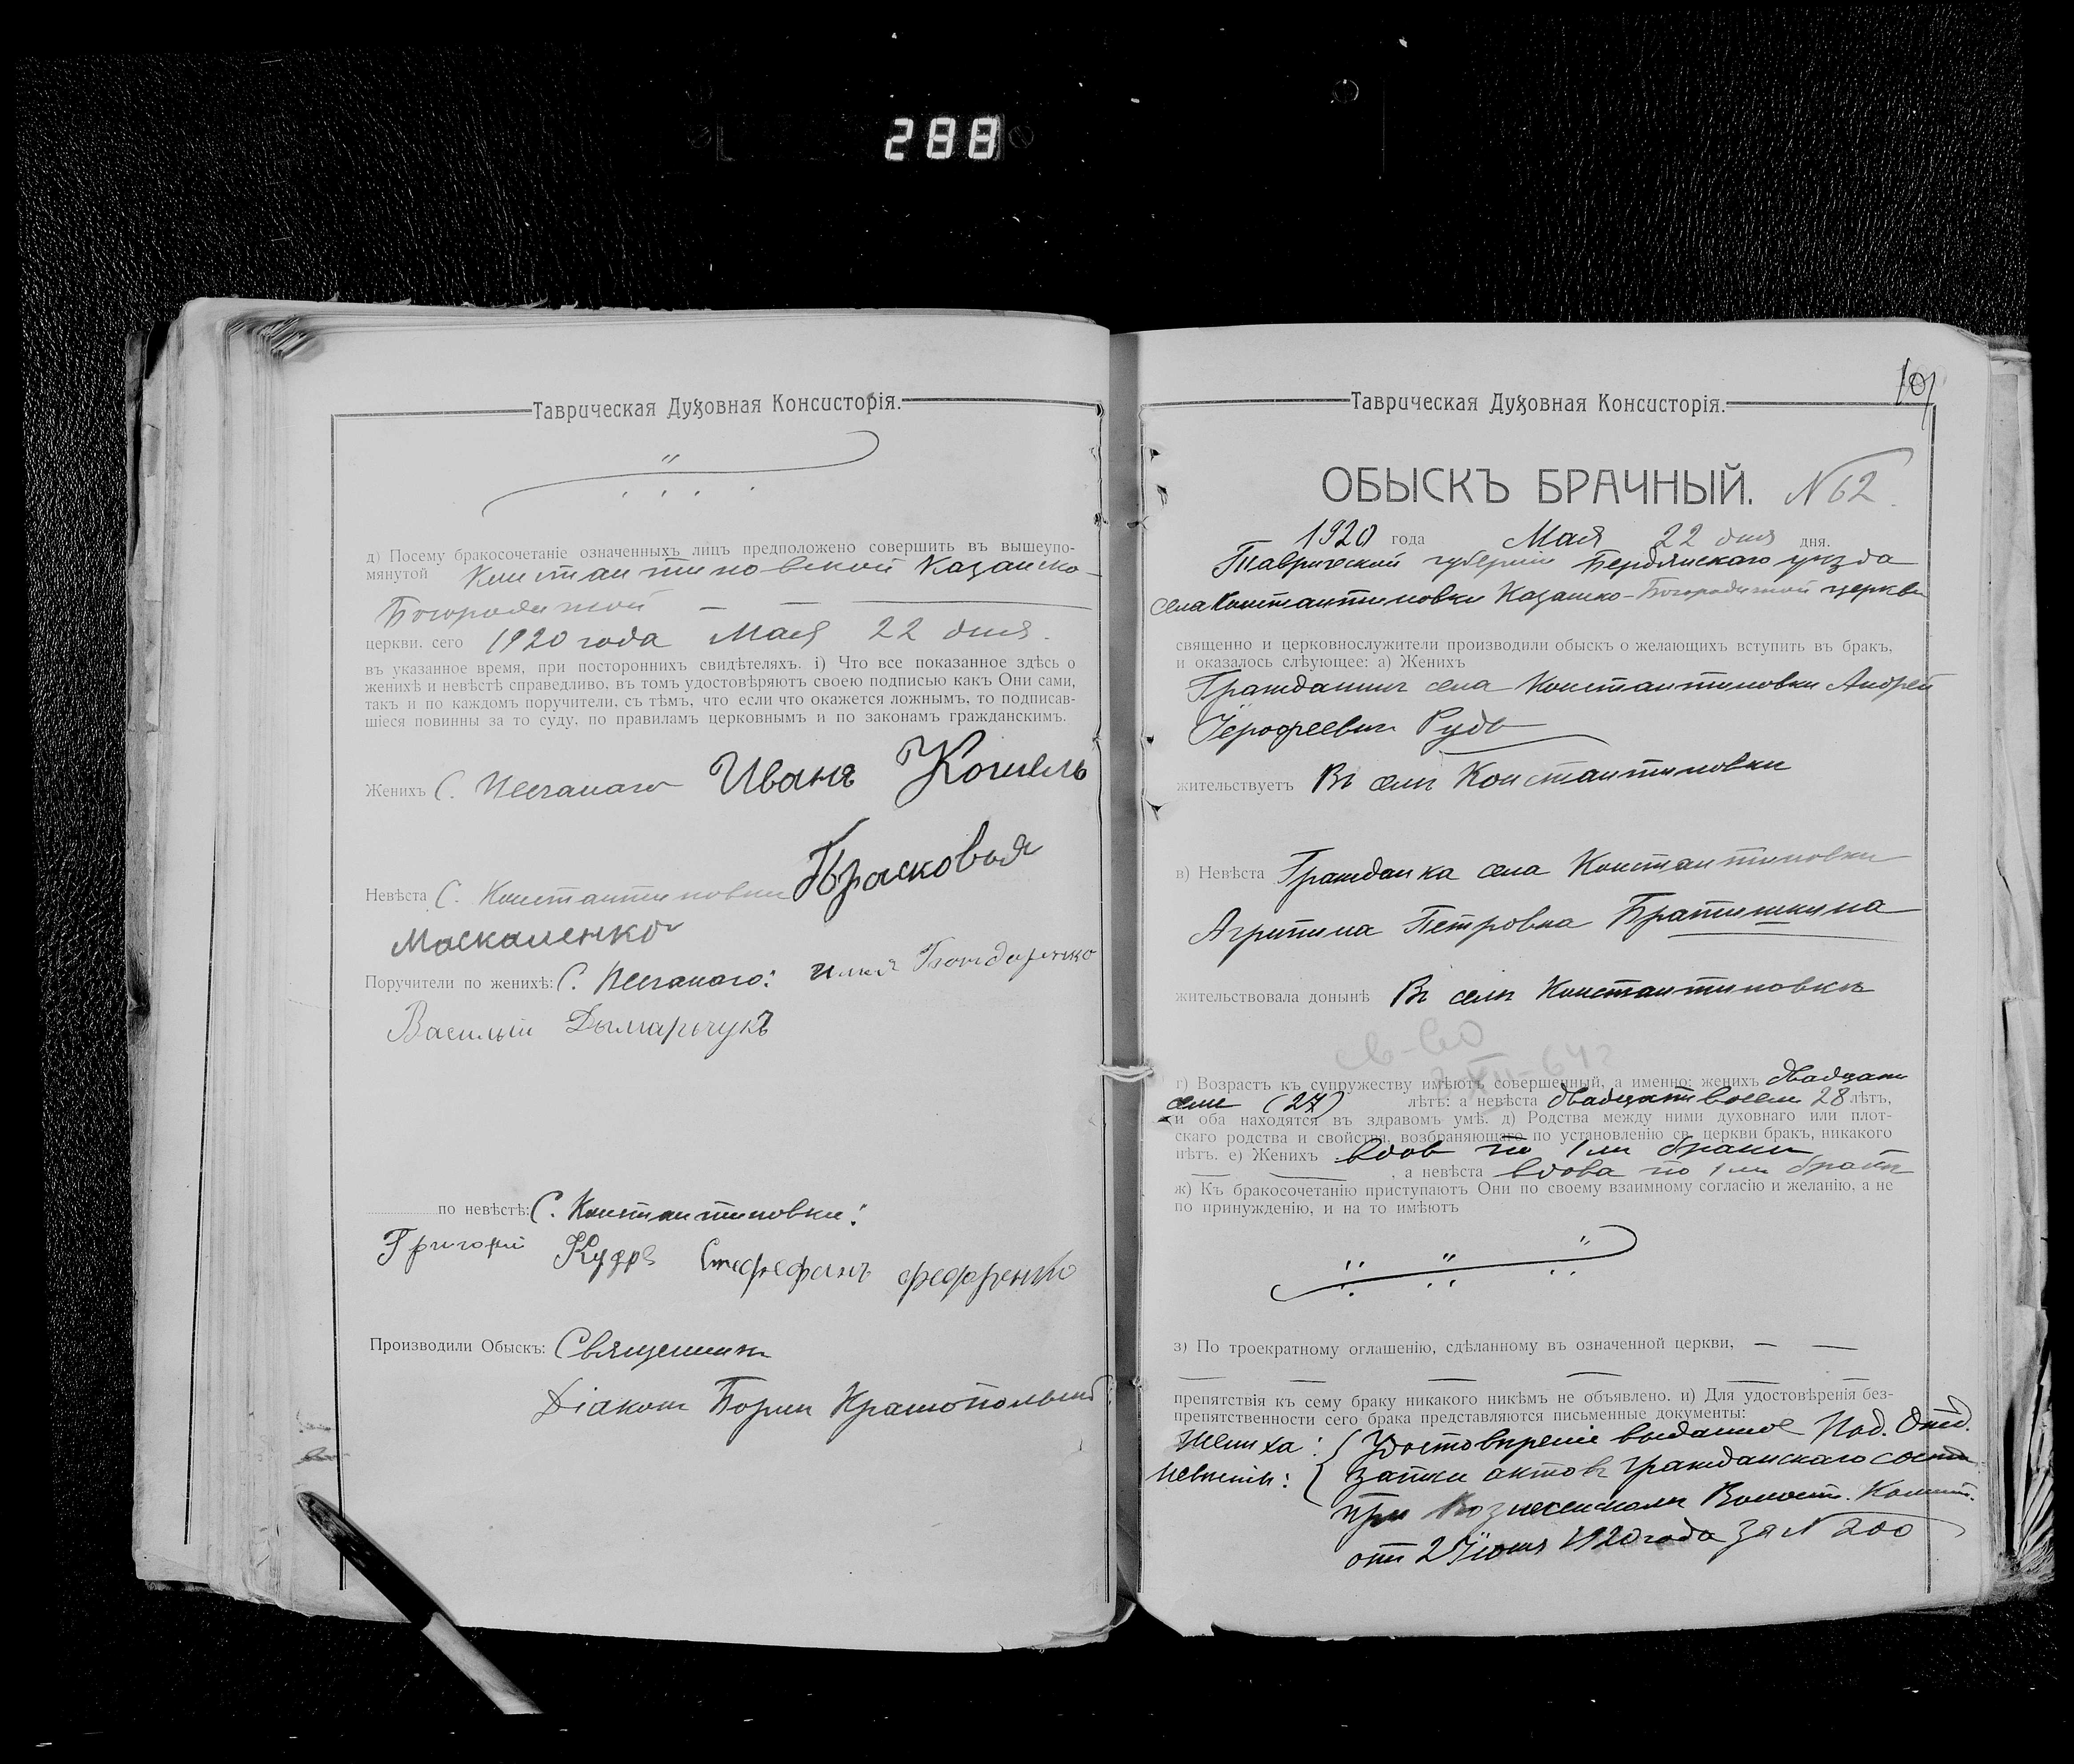 288
Таврическая Духовная Консисторія.
д) Посему бракосочетаніе означенныхъ лицъ предположено совершить въ вышеупо-
мянутой Константиновской Казанско-
Богородичной
церкви. сего 1920 года Мая 22 дня.
въ указанное время, при постороннихъ свидѣтеляхъ. і) Что все показанное здѣсь о
женихѣ и невѣстѣ справедливо, въ томъ удостовѣряютъ своею подписью какъ Они сами,
такъ и по каждомъ поручители, съ тѣмъ, что если что окажется ложнымъ, то подписав-
шіеся повинны за то суду, по правиламъ церковнымъ и по законамъ гражданскимъ.
Женихъ С. Песчанаго Иванъ Кошель
Невѣста С. Константиновки Прасковья
Москаленко
Поручители по женихѣ: С. Песчанаго: Илья Бондаренко
Василий Дымарчукъ
по невѣстѣ: С. Константиновки:
Григорій Кудря Стефанъ
Производили Обыскъ: Священникъ
Діаконъ Борис
Таврическая Духовная Консисторія.
ОБЫСКЪ БРАЧНЫЙ. N 62
1920 года Мая 22 дня дня.
Таврической губернiи Бердянскаго уѣзда
села Константиновки Казанско-Богородичной церкви
священно и церковнослужители производили обыскъ о желающихъ вступить въ бракъ,
и оказалось слѣующее: а) Женихъ
Гражданинъ села Константиновки Андрей
Іерофеевич Рудь
жительствуетъ Въ селѣ Константиновки
в) Невѣста Гражданка села Константиновки
Агрипина Петровна Братишкина
жительствовала донынѣ Въ селѣ Константиновкѣ
св-во
XII-64 г
г) Возрастъ къ супружеству имѣютъ совершенный, а именно: женихъ двадцати
семи (27) лѣтъ: а невѣста двадцати восем 28 лѣтъ,
и оба находятся въ здравомъ умѣ. д) Родства между ними духовнаго или плот-
скаго родства и свойства, возбраняющаго по установленію св. церкви бракъ, никакого
нѣтъ. е) Женихъ вдов по 1 м браки
, а невѣста вдова по 1 м бракѣ
ж) Къ бракосочетанію приступаютъ Они по своему взаимному согласію и желанію, а не
по принужденію, и на то имѣютъ
з) По троекратному оглашенію, сдѣланному въ означенной церкви,
препятствія къ сему браку никакого никѣмъ не объявлено. и) Для удостовѣренія без-
препятственности сего брака представляются письменные документы:
Жениха: { Удостовѣреніе выданное Под. Отд.
Невѣсты: { записи актовъ гражданскаго сост.
при Вознесенском Волост. Комит.
отъ 2 Іюня 1920 года за N 200